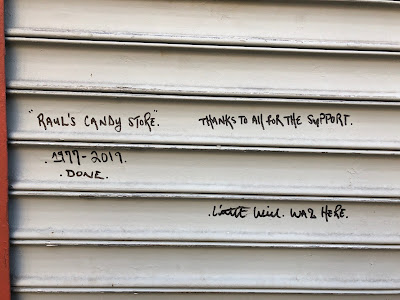 "RAUL'S CANDY STORE".
THANKS TO All FOR THE SUPPORT.
.1977-2019.
.DONE.
WILL. WAS HERE.